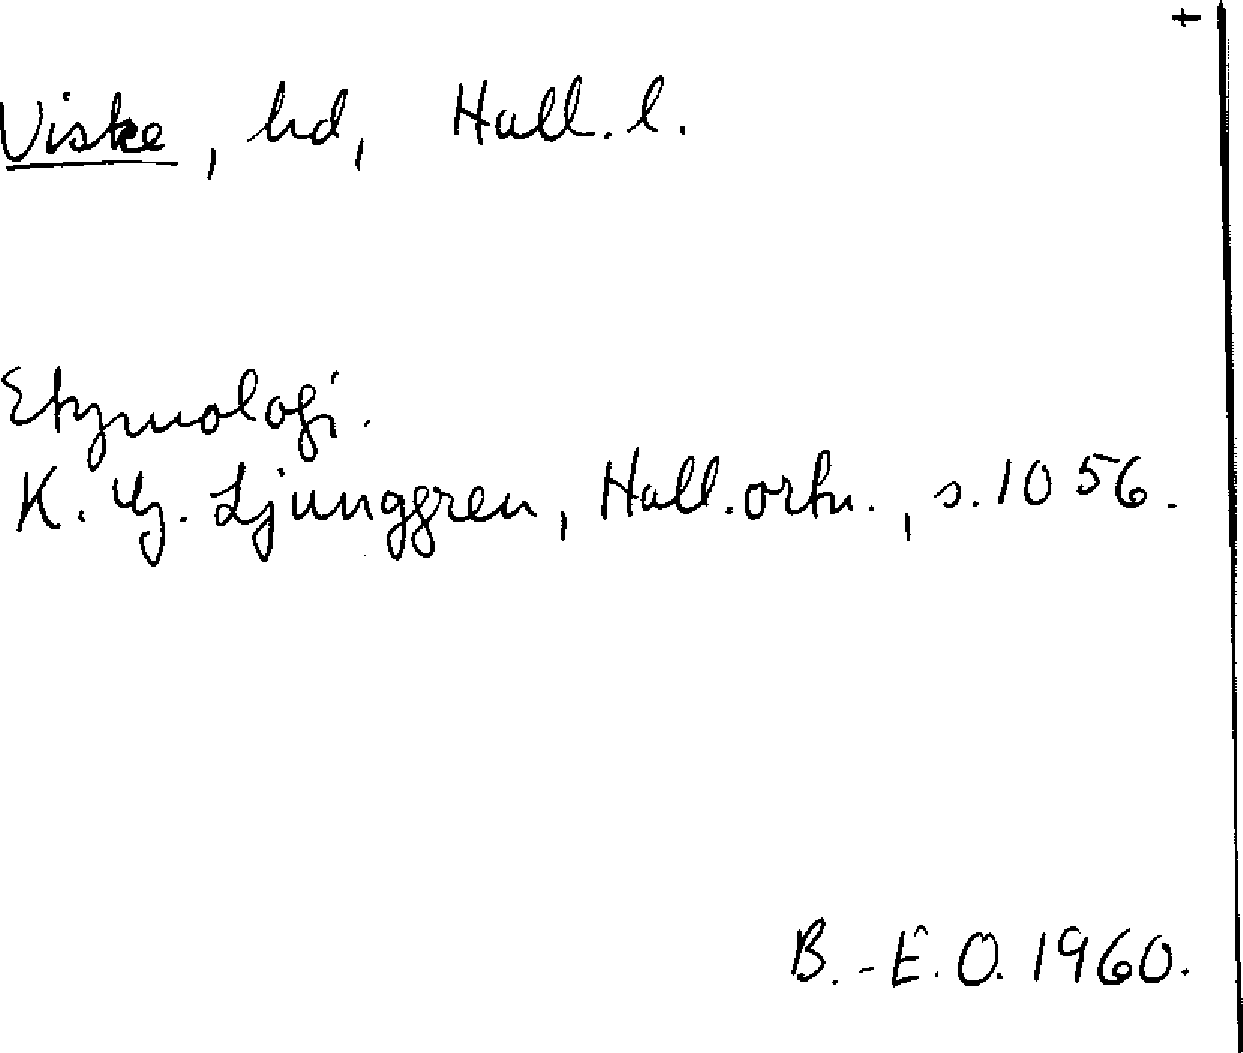 +
Viske, hd, Hall. l.
Etymologi.
K. G. Ljunggren, Hall. ortn., s. 1056.
B.-E.O. 1960.